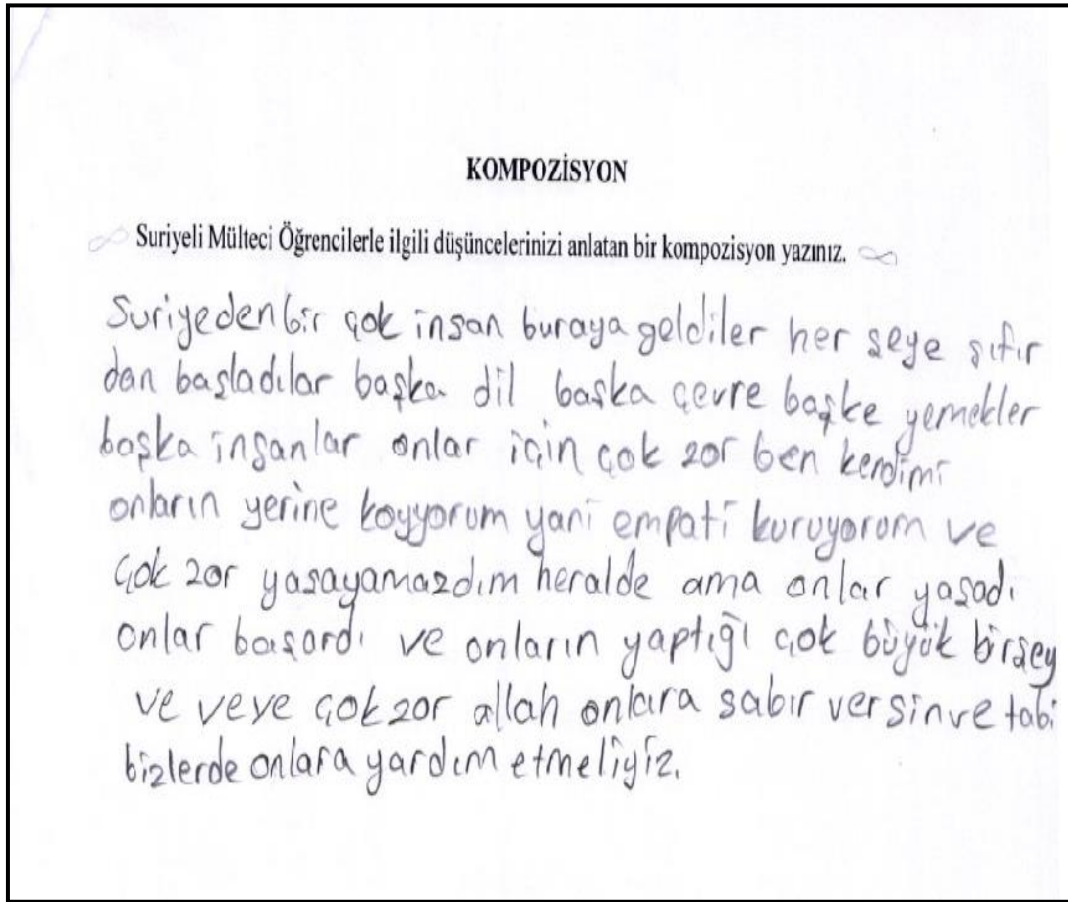 KOMPOZİSYON
Suriyeli Mülteci Öğrencilerle ilgili düşüncelerinizi anlatan bir kompozisyon yazınız.
Suriyeden bir çok insan buraya geldiler her şeye sıfır
dan başladılar başka dil başka çevre başke yemekler
başka insanlar onlar için çok zor ben kendimi
onların yerine koyyorum yani empati kuruyorom ve
çok zor yaşayamazdım heralde ama onlar yaşadı
onlar başardı ve onların yaptığı çok büyük birşey
ve veye çok zor allah onlara sabır versin ve tabi
bizlerde onlara yardım etmeliyiz.